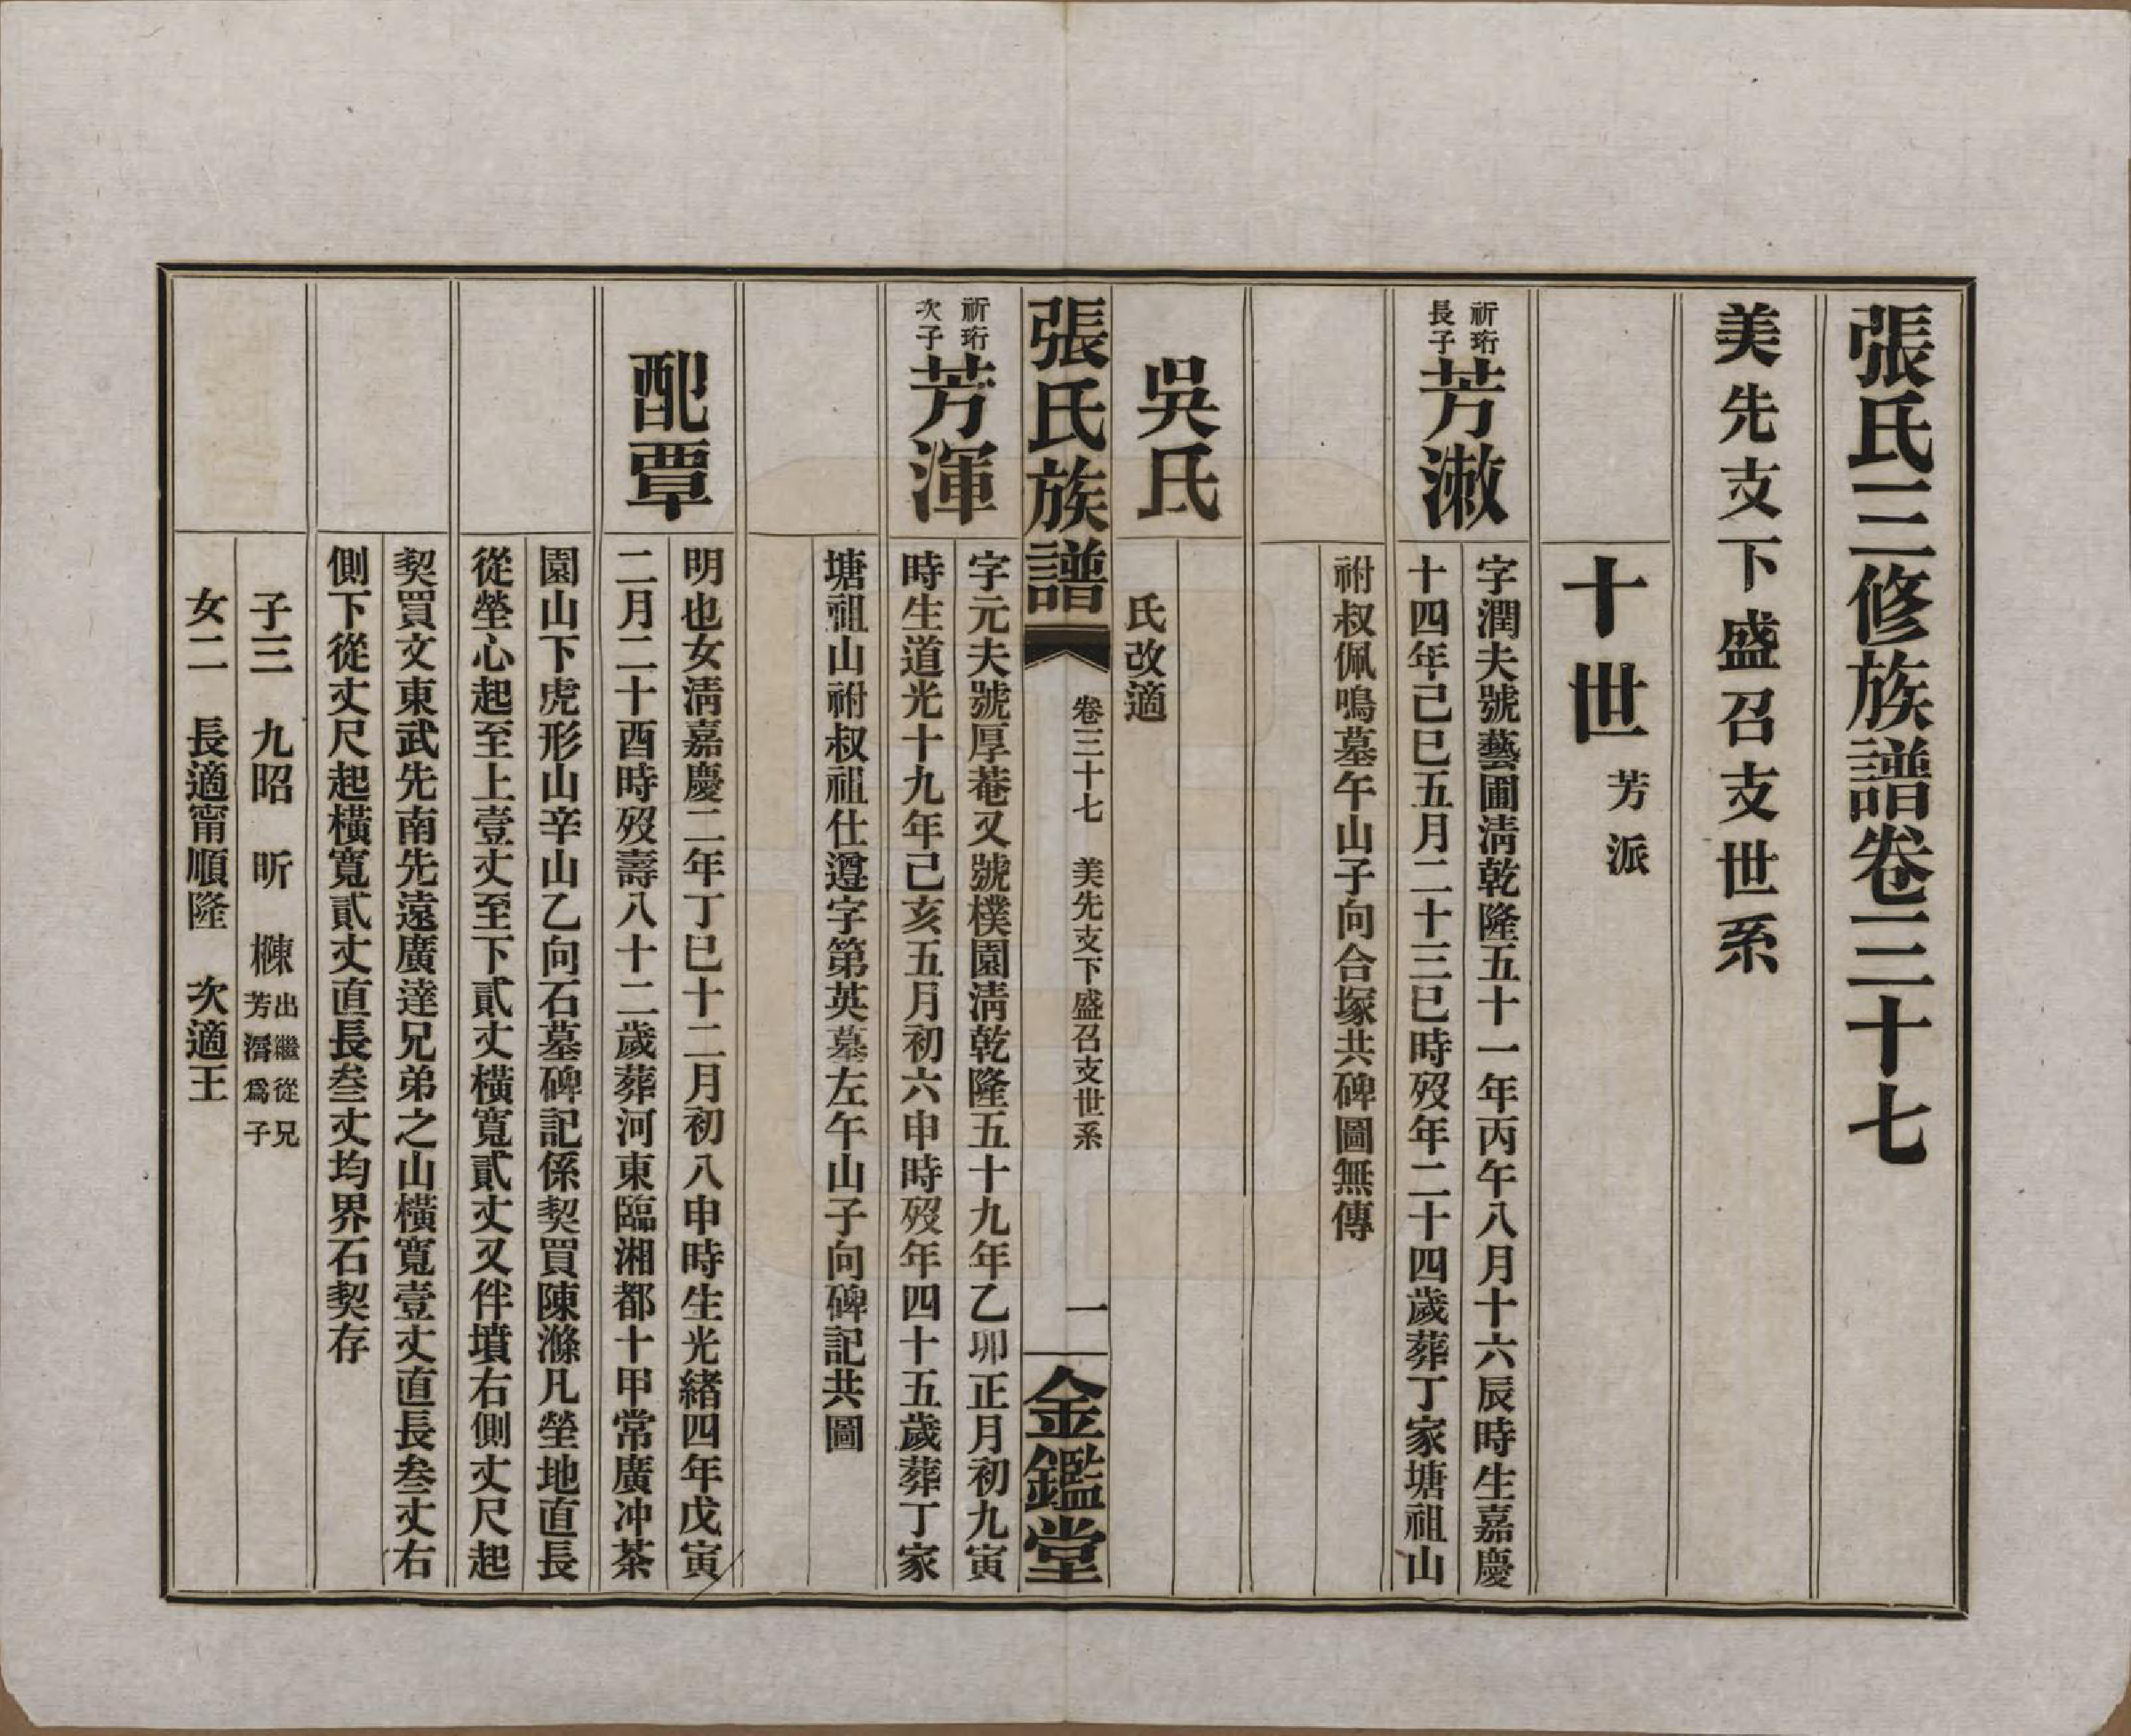 張氏三修族譜卷三十七
美先支下盛召支世系
十世 芳派
祈珩長子
芳漵
字潤夫號藝圃淸乾隆五十一年丙午八月十六辰時生嘉慶
十四年己巳五月二十三巳時歿年二十四歲葬丁家塘祖山
祔叔佩鳴墓午山子向合塚共碑圖無傳
吳氏
氏改適
張氏族譜 卷三十七 美先支下盛召支世系 一 金鑑堂
祈珩次子
芳渾
字元夫號厚菴又號樸園淸乾隆五十九年乙卯正月初九寅
時生道光十九年己亥五月初六申時歿年四十五歲葬丁家
塘祖山祔叔祖仕遵字第英墓左午山子向碑記共圖
配覃
明也女淸嘉慶二年丁巳十二月初八申時生光緒四年戊寅
二月二十酉時歿壽八十二歲葬河東臨湘都十甲常廣冲茶
園山下虎形山辛山乙向石墓碑記係契買陳滌凡塋地直長
從塋心起至上壹丈至下貳丈橫寬貳丈又伴墳右側丈尺起
契買文東武先南先遠廣達兄弟之山橫寬壹丈直長叁丈右
側下從丈尺起橫寬貳丈直長叁丈均界石契存
子三 九昭 昕 棟 出繼從兄芳濳爲子
女二 長適甯順隆 次適王